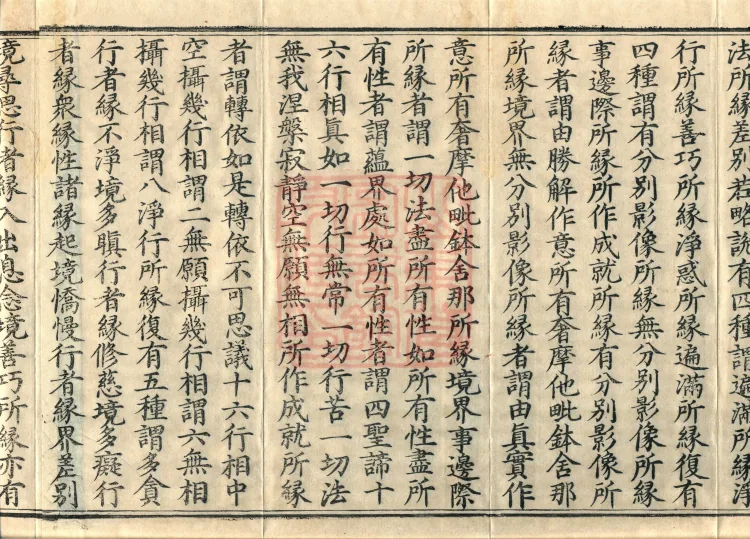 法所緣差別若略說有四種謂遍滿所緣淨
行所緣善巧所緣淨惑所緣遍滿所緣復有
四種謂有分別影像所緣無分別影像所緣
事邊際所緣所作成就所緣有分別影像所
緣者謂由勝解作意所有奢摩他毗鉢舍那
所緣境界無分別影像所緣者謂由真實作
意所有奢摩他毗鉢舍那所緣境界事邊際
所緣者謂一切法盡所有性如所有性盡所
有性者謂蘊界處如所有性者謂四聖諦十
六行相真如一切行無常一切行苦一切法
無我涅槃寂靜空無願無相所作成就所緣
者謂轉依如是轉依不可思議十六行相中
空攝幾行相謂二無願攝幾行相謂六無相
攝幾行相謂八淨行所緣復有五種謂多貪
行者緣不淨境多瞋行者緣修慈境多癡行
者緣眾緣性諸緣起境憍慢行者緣界差別
境尋思行者緣入出息念境善巧所緣亦有